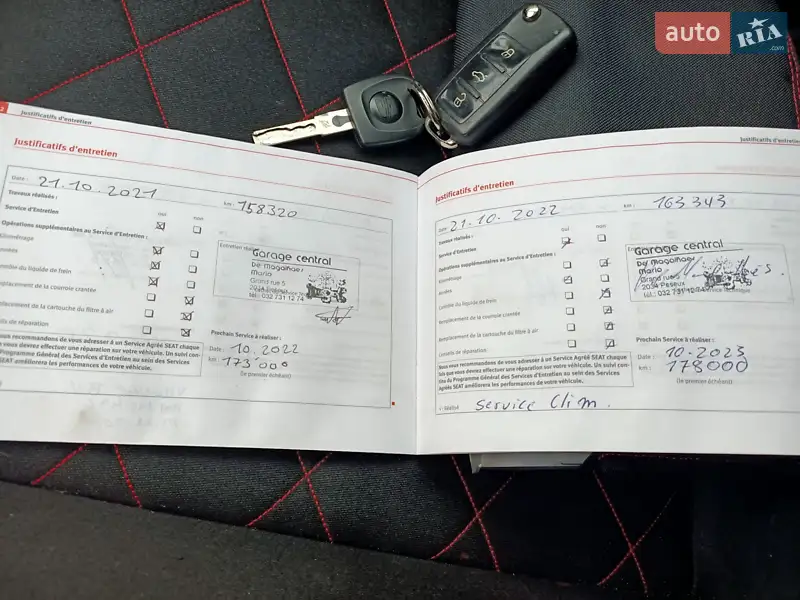 auto RIA.com
Justificatifs d'entretien
Justificatifs d'entretien
Date : 21.10.2021 km : 158320
Travaux réalisés :
Service d'Entretien
oui non
Opérations supplémentaires au Service d'Entretien :
Kilométrage
Années
Contrôle du liquide de frein
Remplacement de la courroie crantée
Remplacement de la cartouche du filtre à air
de réparation
Garage central
De Magalhaes
Mario
Grand rue 5
2034 Peseux
tél.: 032 731 12 74
Prochain Service à réaliser :
Date : 10.2022
km : 173'000
(le premier échéant)
Nous recommandons de vous adresser à un Service Agréé SEAT chaque
vous devrez effectuer une réparation sur votre véhicule. Un suivi con-
Programme Général des Services d'Entretien au sein des Services
SEAT améliorera les performances de votre véhicule.
Justificatifs d'entretien
Justificatifs d'entretien
Date : 21.10.2022 km : 163343
Travaux réalisés :
oui non
Service d'Entretien
Opérations supplémentaires au Service d'Entretien :
Kilométrage
Années
Contrôle du liquide de frein
Remplacement de la courroie crantée
Remplacement de la cartouche du filtre à air
Conseils de réparation
Garage central
De Magalhaes
Mario
Grand rue 5
2034 Peseux
tél.: 032 731 12 74
Prochain Service à réaliser :
Date : 10.2023
km : 178000
(le premier échéant)
Nous vous recommandons de vous adresser à un Service Agréé SEAT chaque
fois que vous devrez effectuer une réparation sur votre véhicule. Un suivi con-
tinu du Programme Général des Services d'Entretien au sein des Services
Agréé SEAT améliorera les performances de votre véhicule.
service Clim.